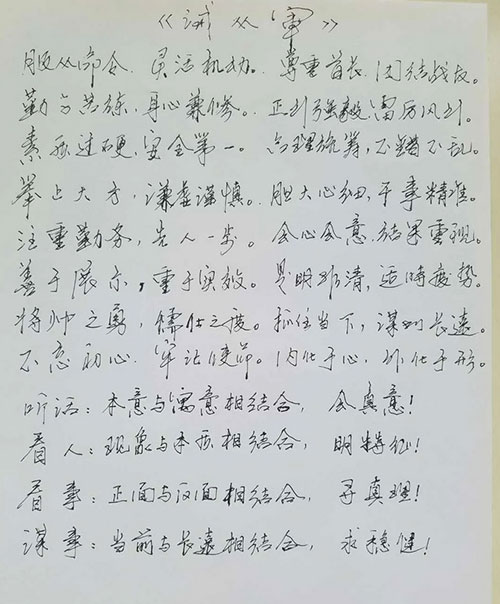 《诫从军》
服从命令、灵活机动。尊重首长、团结战友。
勤学苦练,身心兼修。正到强毅,雷厉风到。
素质过硬,安全第一。合理施算,不错不乱。
举止大方,谦虚谨慎。胆大心细,干事精准。
注重勤务,先人一步。会心会意,结果重现。
善于展示,重于实效。是明非清,适时疲势。
将帅之勇,儒仕之度。抓住当下,谋划长远。
不忘初心、牢记使命。内化于心,外化于形。
听话:本意与寓意相结合,会真意!
看人:现象与本质相结合,明特征!
看事:正面与反面相结合,寻真理!
谋事:当前与长远相结合,求稳健!